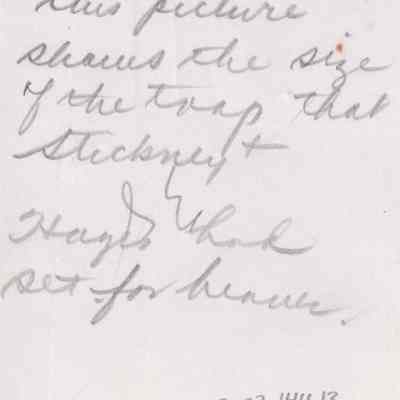 this picture
shows the size
of the trap that
Stickney +
Hayes had
set for beaver.